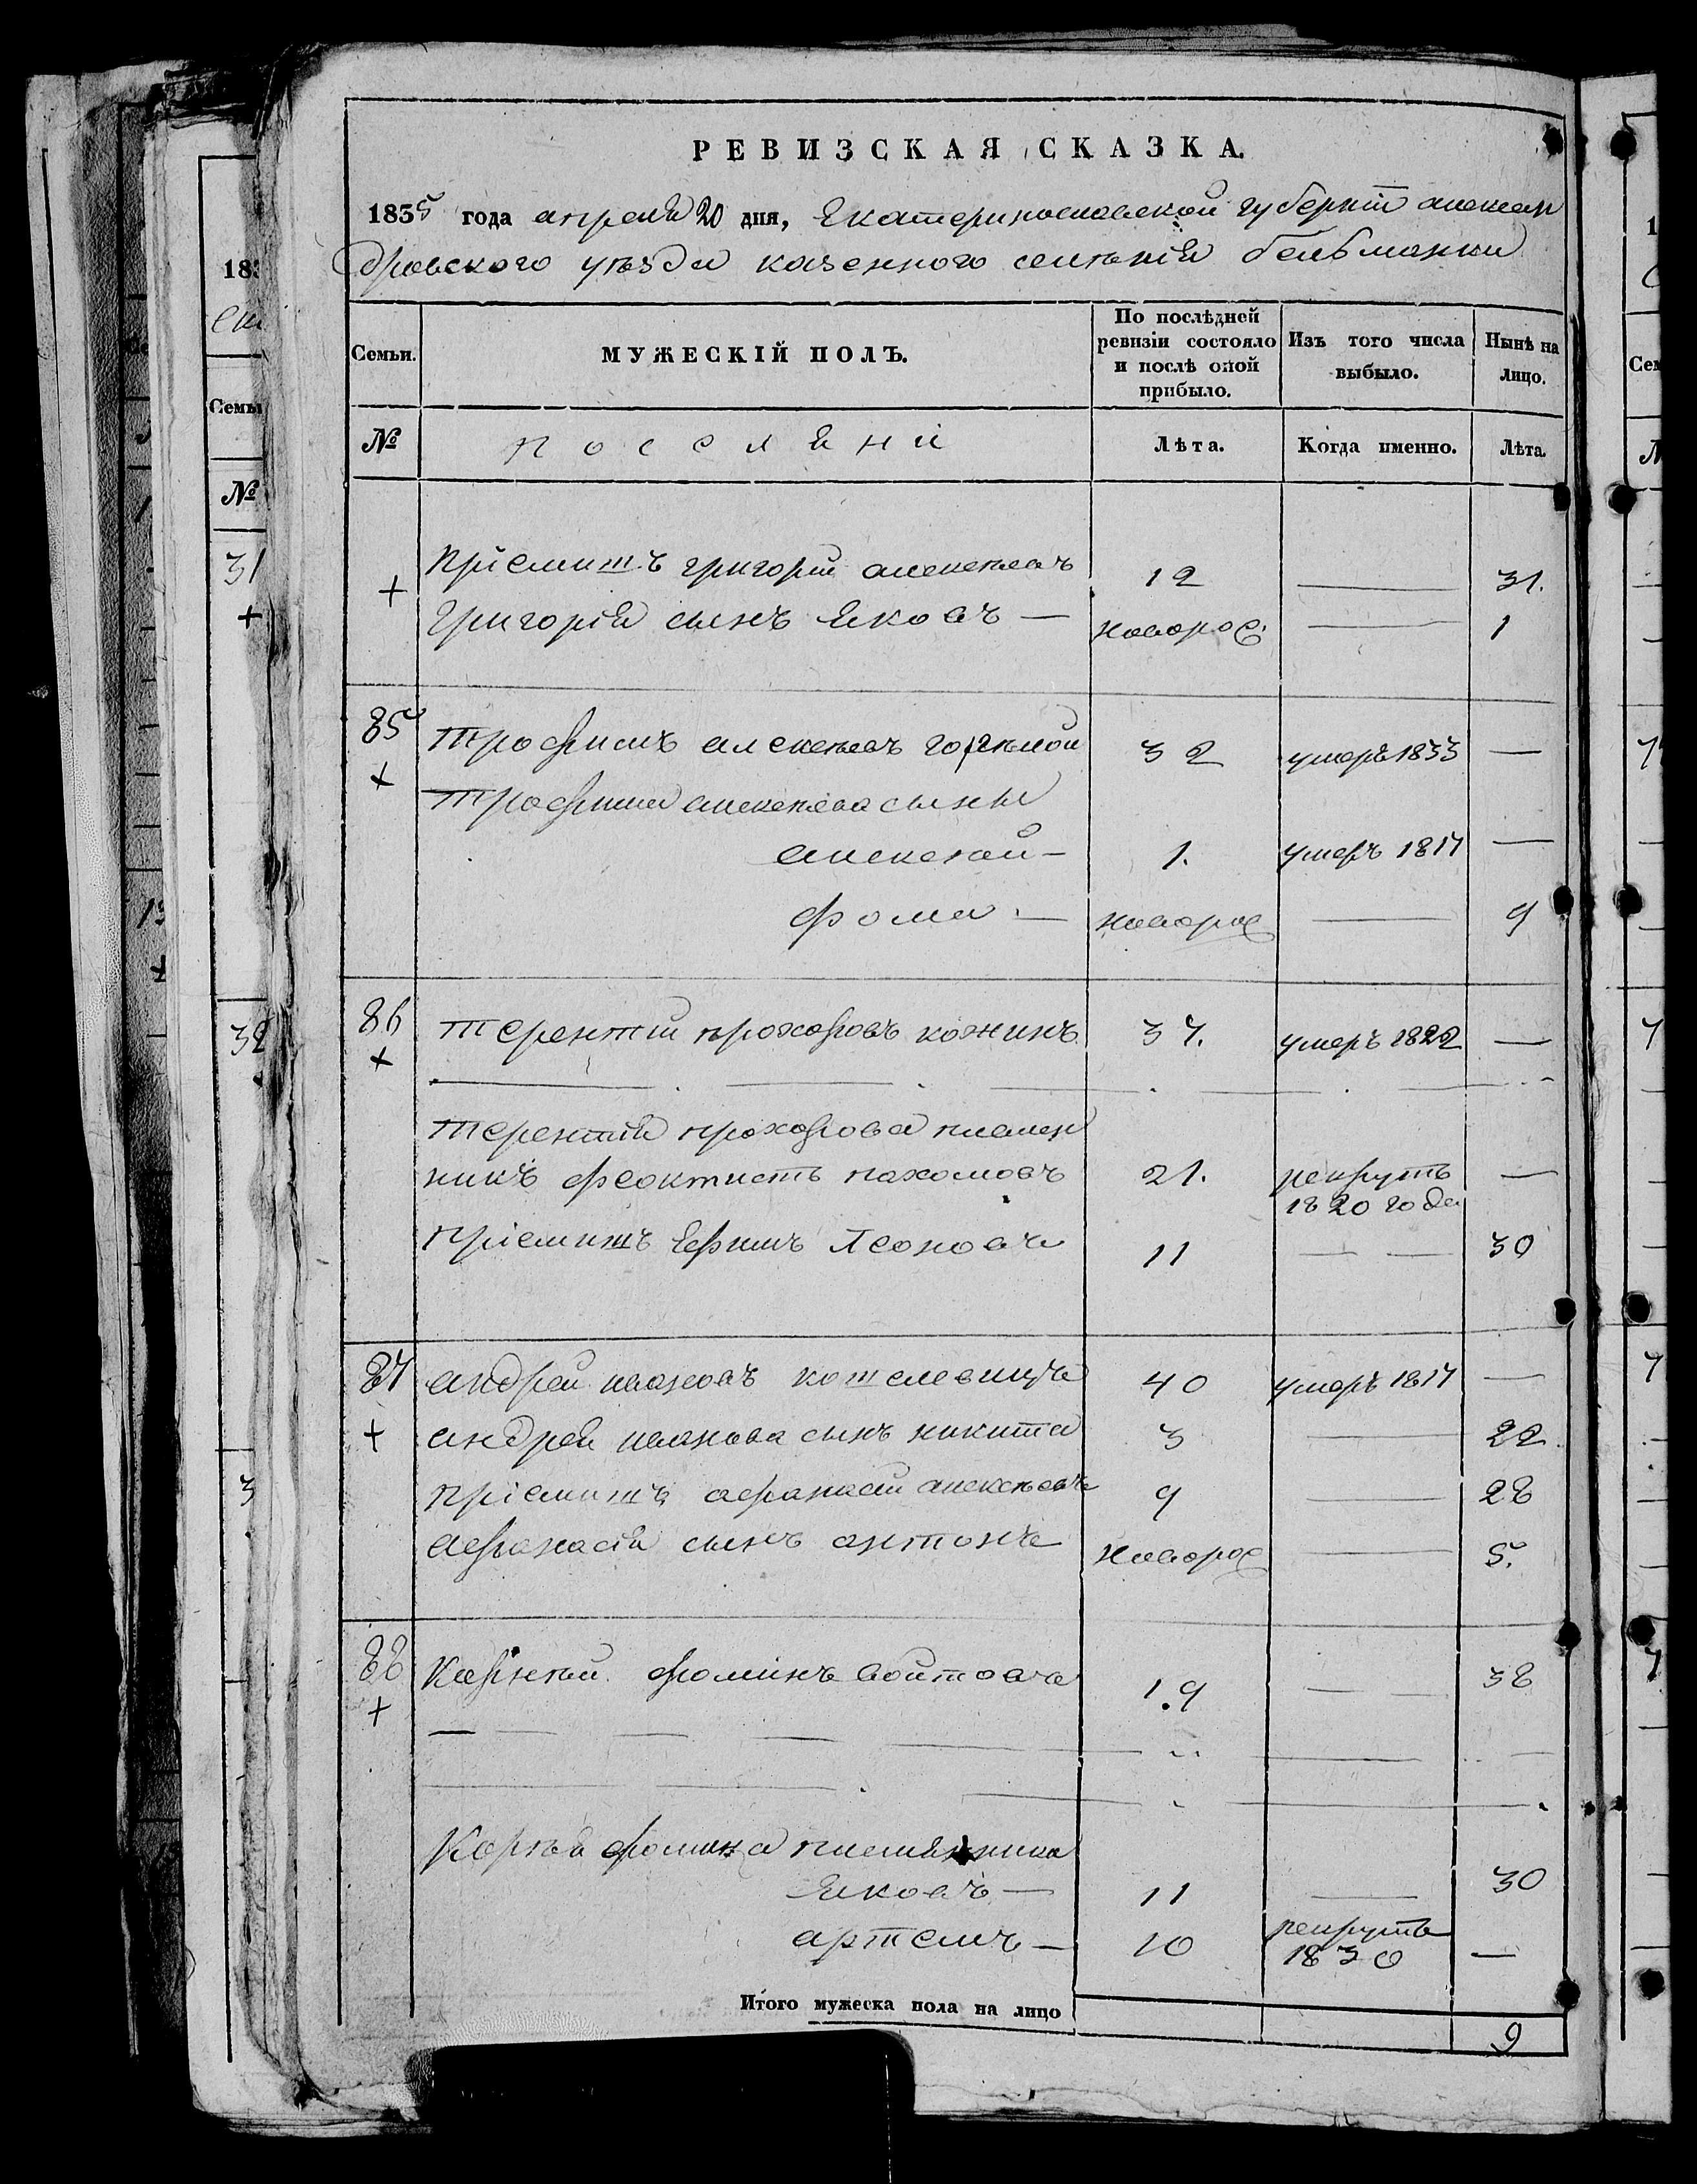 РЕВИЗСКАЯ СКАЗКА.
1835 года апреля 20 дня, Екатеринославской губернїи алексан
дровского уѣзда казенного селенїя бельманки
Семьи.
МУЖЕСКІЙ ПОЛЪ.
По послѣдней ревизіи состояло и послѣ оной прибыло.
Изъ того числа выбыло.
Нынѣ на лицо.
№
поселяни
Лѣта.
Когда именно.
Лѣта.
+ прїемишъ григорий алексѣевъ 12 — 31.
григорїя сынъ яковъ — новорож. — 1
85 трофимъ алексѣевъ 32 умеръ 1833 —
+ трофима алексѣева сыны
алексѣй — 1. умеръ 1817 —
фома — новорож — 9
86 терентий прохоровъ кожинъ 37. умеръ 1822 —
+
терентия прохорова племян
никъ феоктистъ пахомовъ 21. рекрутъ —
1820 года
прїемишъ Ефимъ Леоновъ 11 — — 30
87 андрей ивановъ 40 умеръ 1817 —
+ андрея иванова сынъ никита 3 — 22
прїемишъ афанасий алексѣевъ 9 — 28
афанасїя сынъ антонъ новорож — 5.
88 Карнѣй фоминъ войтовъ 19 — — 38
+
Корнѣя фомина племянники
яковъ — 11 — 30
артемъ — 10 рекрутъ —
1830
Итого мужеска пола на лицо 9
183
Семьи
№
31
+
32
3